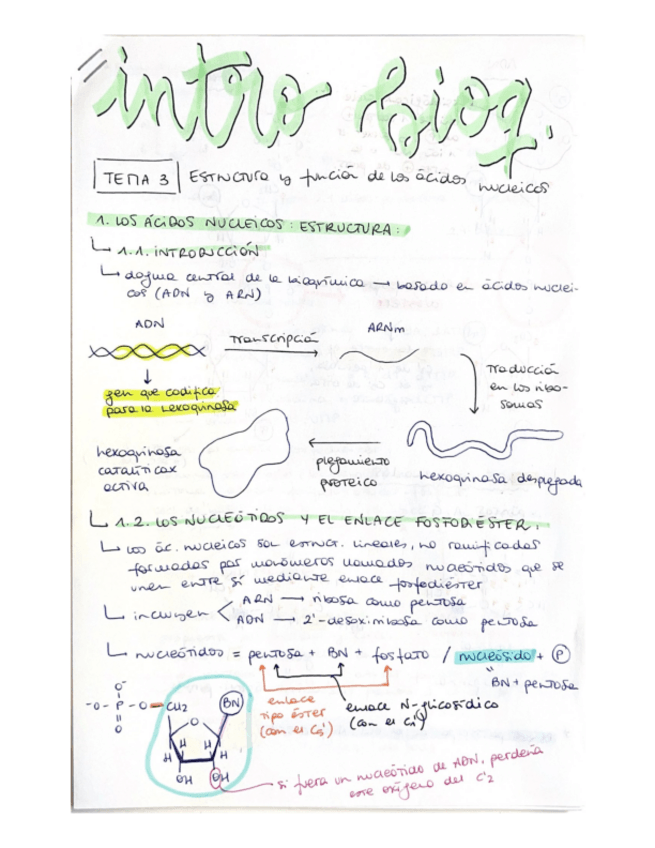 intro bioq.
TEMA 3 Estructura y función de los ácidos nucleicos
1. LOS ÁCIDOS NUCLEICOS: ESTRUCTURA:
1.1. INTRODUCCIÓN
dogma central de la bioquímica → basado en ácidos nuclei-
cos (ADN y ARN)
ADN
transcripción
ARNm
traducción
en los ribo-
somas
gen que codifica
para la hexoquinasa
hexoquinasa
catalítica
activa
plegamiento
proteico
hexoquinasa desplegada
1.2. LOS NUCLEÓTIDOS Y EL ENLACE FOSFODIÉSTER.
los ác. nucleicos son estruct. lineales, no ramificadas
formadas por monómeros llamados nucleótidos que se
unen entre sí mediante enlace fosfodiéster
incluyen
ARN → ribosa como pentosa
ADN → 2'-desoxirribosa como pentosa
nucleótidos = pentosa + BN + fosfato / nucleósido + P
BN + pentosa
enlace
tipo éster
(con el C5')
enlace N-glicosídico
(con el C1')
O-
-O-P-O-CH2
O
BN
O
H H
H H
OH OH
si fuera un nucleótido de ADN, perdería
este oxígeno del C'2